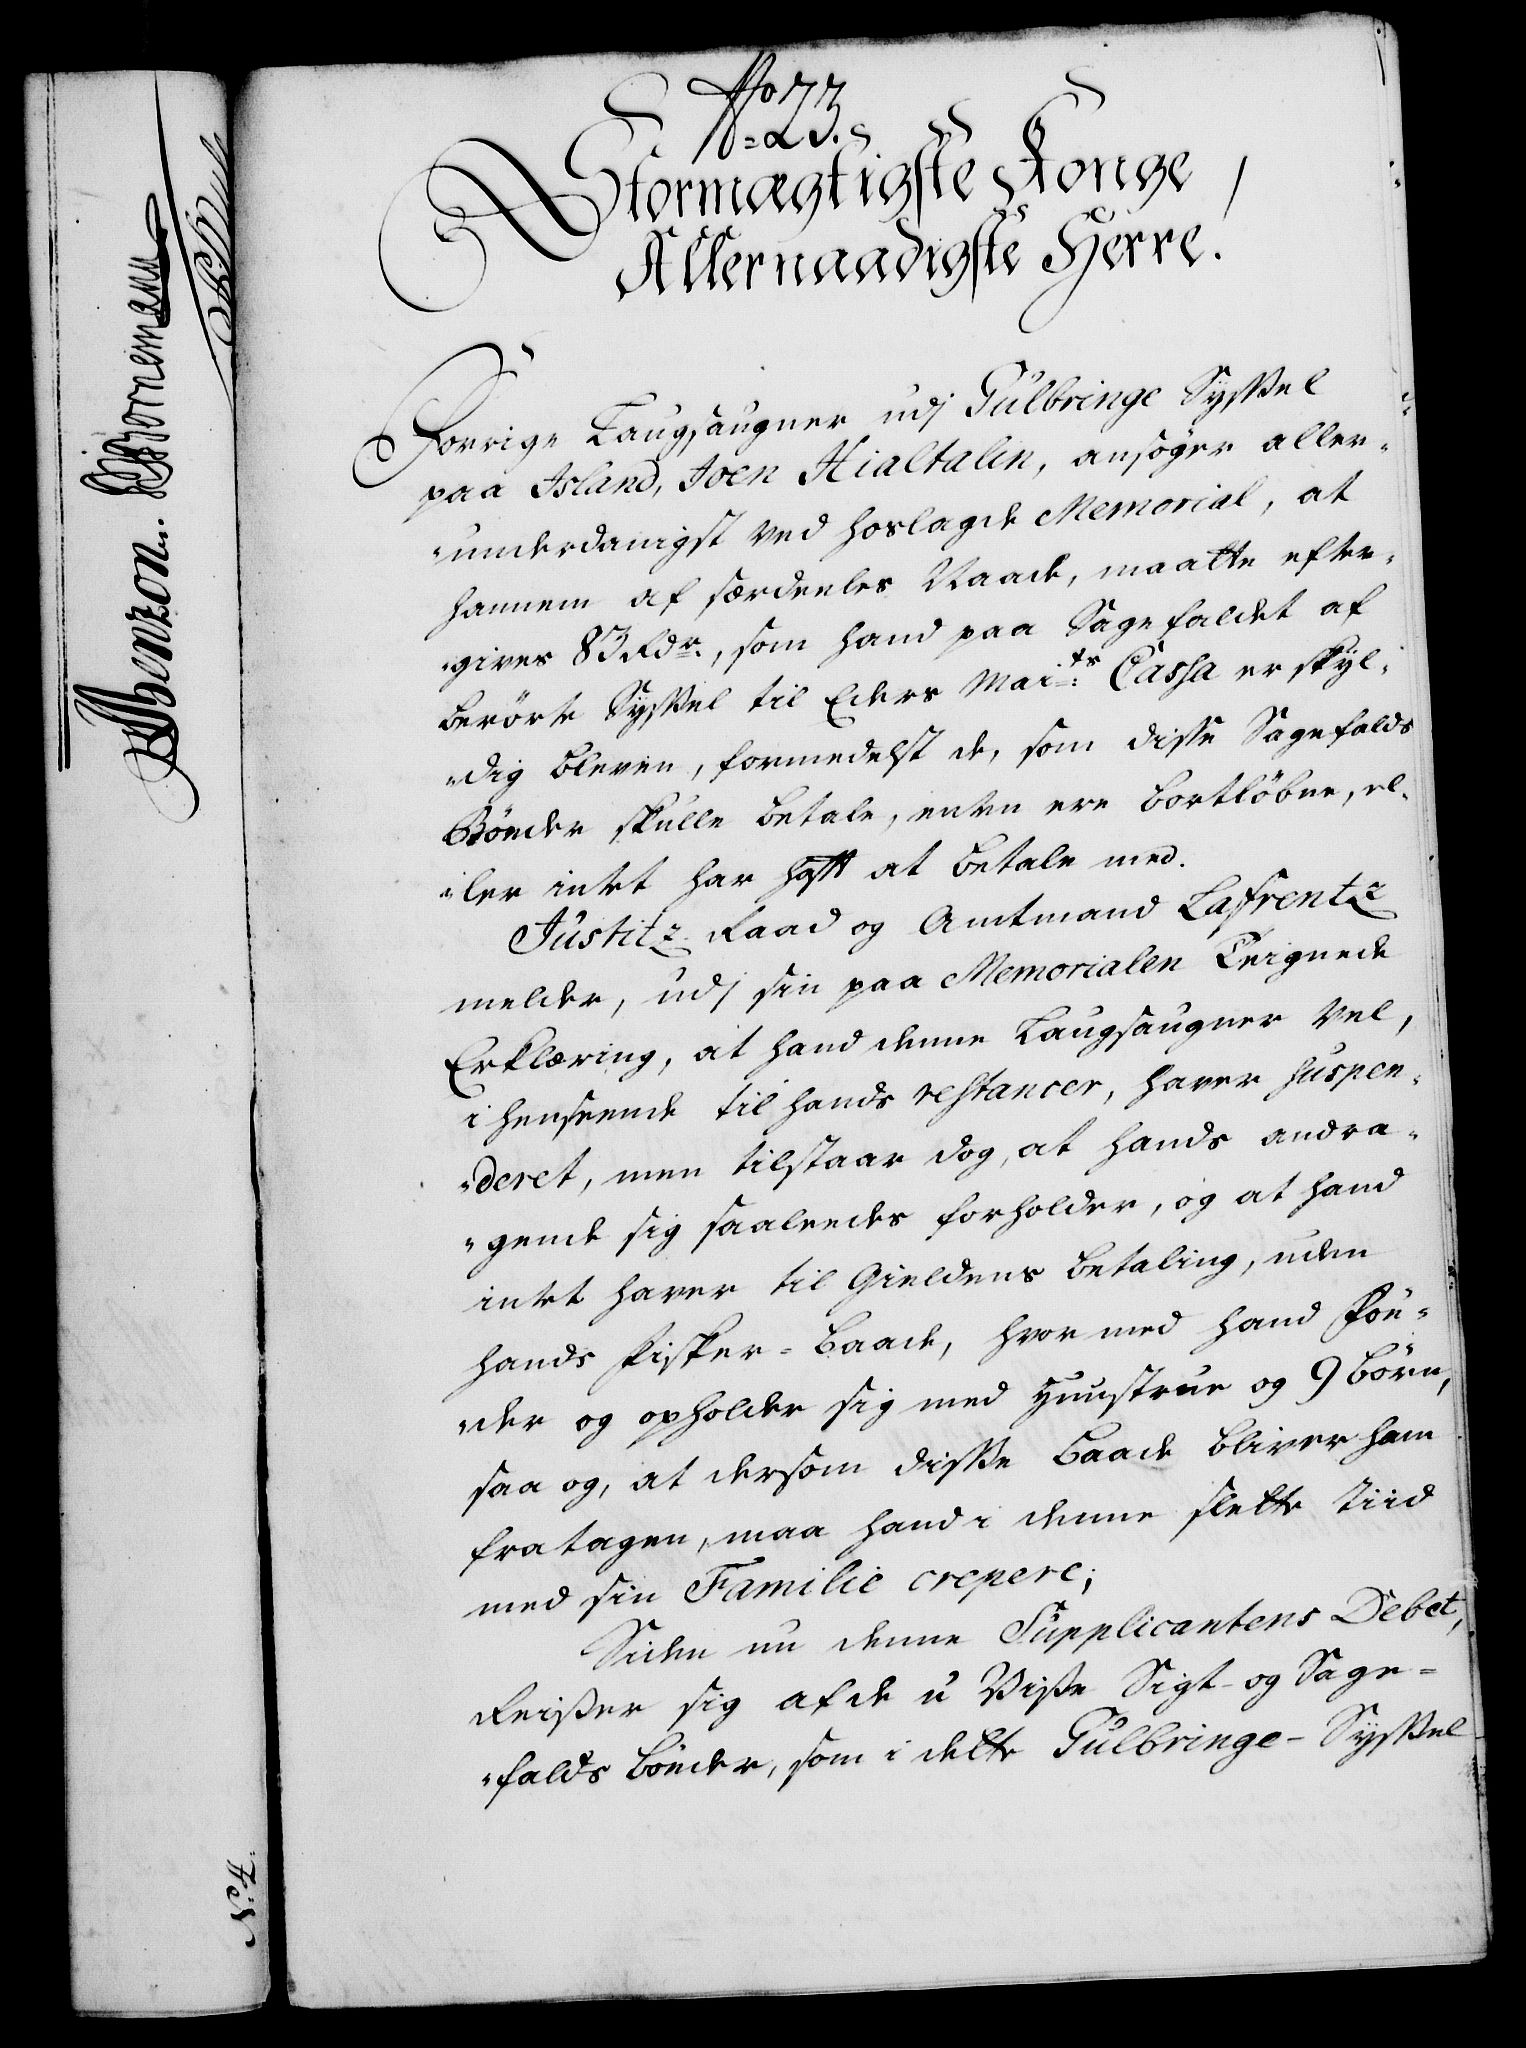 No 23.
Stormægtigste Konge
Allernaadigste Herre!
Forrige Laugsaugner udj Gulbringe Syssel
paa Island, Joen Hialtalin, ansøger aller-
underdanigst ved hoslagde Memorial, at
hannem af særdeeles Naade, maatte efter-
gives 83 Rdr., som hand paa Sagefaldet af
berørte Syssel til Eders Maits Cassa er skyl-
dig bleven, formedelst de, som disse Sagefalds
Bøder skulle betale, enten ere bortløbne, el-
ler intet har haft at betale med.
Justitz Raad og Amtmand Lafrentz
melder, udj sin paa Memorialen Teignede
Erklæring, at hand denne Laugsaugner vel,
i henseende til hands restancer, haver suspen-
deret, men tilstaar dog, at hands andra-
gende sig saaledes forholder, og at hand
intet haver til Gieldens betaling, uden
hands Fisker-Baade, hvor med hand Føe-
der og opholder sig med Huustrue og 9 børn,
saa og, at dersom disse Baade bliver ham
fratagen, maa hand i denne slette Tiid
med sin Familie crepere;
Siden nu denne Supplicantens Debet,
Reiser sig af de u Visse Sigt- og Sage-
falds bøder, som i dette Gulbringe-Syssel
Benzon. Bornemann
No 4.